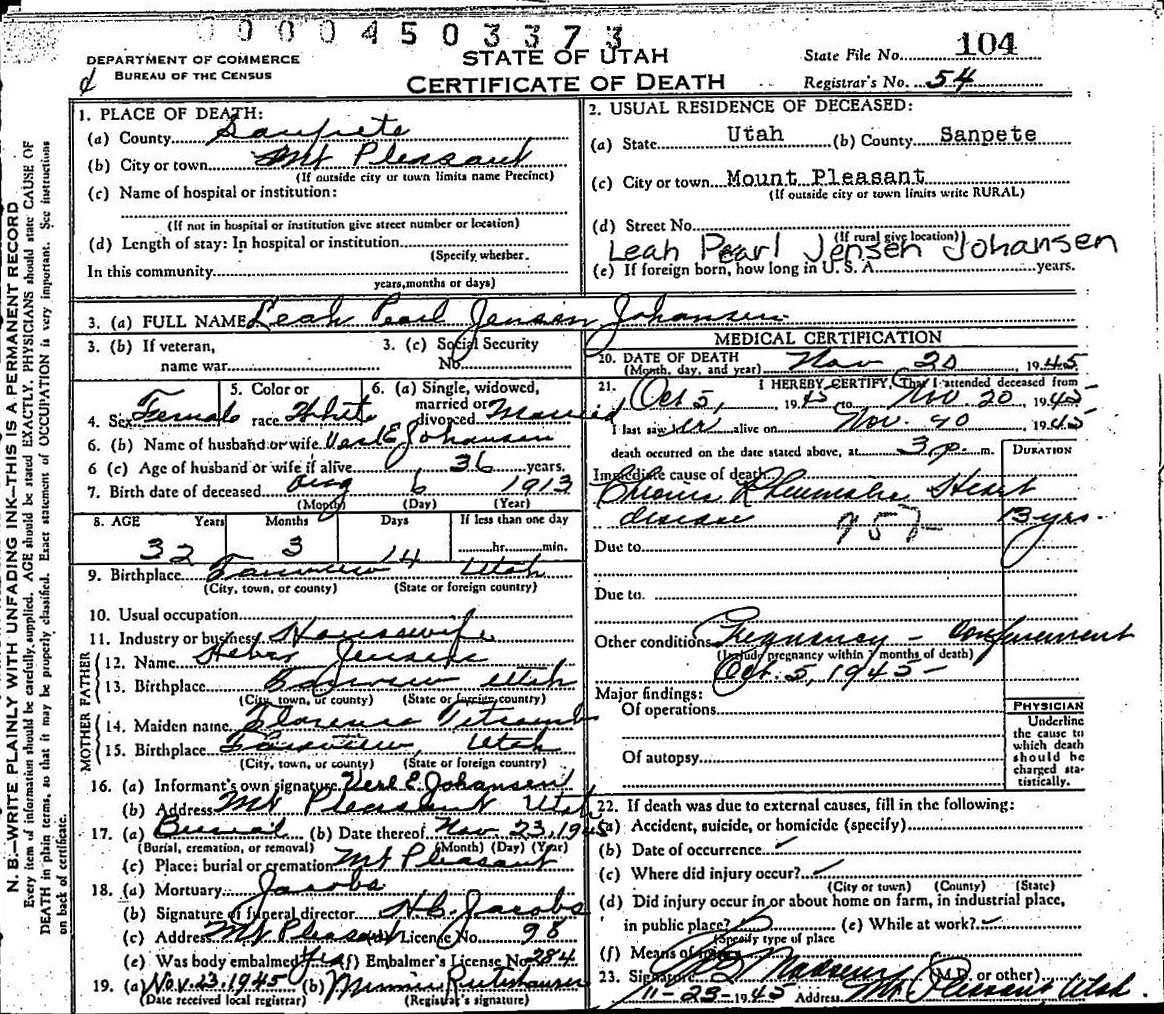 00004503373
DEPARTMENT OF COMMERCE
BUREAU OF THE CENSUS
STATE OF UTAH
CERTIFICATE OF DEATH
State File No. 104
Registrar's No. 54
N. B.—WRITE PLAINLY WITH UNFADING INK—THIS IS A PERMANENT RECORD
Every item of information should be carefully supplied. AGE should be stated EXACTLY. PHYSICIANS should state CAUSE OF
DEATH in plain terms, so that it may be properly classified. Exact statement of OCCUPATION is very important. See instructions
on back of certificate.
1. PLACE OF DEATH:
(a) County Sanpete
(b) City or town Mt Pleasant
(If outside city or town limits name Precinct)
(c) Name of hospital or institution:
(If not in hospital or institution give street number or location)
(d) Length of stay: In hospital or institution
(Specify whether.
In this community
years, months or days)
2. USUAL RESIDENCE OF DECEASED:
(a) State Utah (b) County Sanpete
(c) City or town Mount Pleasant
(If outside city or town limits write RURAL)
(d) Street No.
(If rural give location)
Leah Pearl Jensen Johansen
(e) If foreign born, how long in U. S. A. years.
3. (a) FULL NAME Leah Pearl Jensen Johansen
3. (b) If veteran,
name war
3. (c) Social Security
No.
4. Sex Female
5. Color or
race White
6. (a) Single, widowed,
married or
divorced Married
6. (b) Name of husband or wife Verl E Johansen
6 (c) Age of husband or wife if alive 36 years.
7. Birth date of deceased Aug 6 1913
(Month) (Day) (Year)
8. AGE Years Months Days If less than one day
32 3 14 hr. min.
9. Birthplace Fairview Utah
(City, town, or county) (State or foreign country)
10. Usual occupation
11. Industry or business Housewife
FATHER
12. Name Heber Jensen
13. Birthplace Fairview Utah
(City, town, or county) (State or foreign country)
MOTHER
14. Maiden name Florence
15. Birthplace Fairview, Utah
(City, town, or county) (State or foreign country)
16. (a) Informant's own signature Verl E Johansen
(b) Address Mt Pleasant Utah
17. (a) Burial (b) Date thereof Nov 23, 1945
(Burial, cremation, or removal) (Month) (Day) (Year)
(c) Place: burial or cremation Mt Pleasant
18. (a) Mortuary Jacobs
(b) Signature of funeral director H.C. Jacobs
(c) Address Mt Pleasant (d) License No. 98
(e) Was body embalmed yes (f) Embalmer's License No. 284
19. (a) Nov. 23. 1945 (b) Minnie
(Date received local registrar) (Registrar's signature)
MEDICAL CERTIFICATION
20. DATE OF DEATH
(Month, day, and year) Nov 20 1945
21. I HEREBY CERTIFY, That I attended deceased from
Oct 5, 1945 to Nov 20, 1945
I last saw her alive on Nov. 20 1945
death occurred on the date stated above, at 3 p. m.
DURATION
Immediate cause of death
Rheumatic Heart
disease 13 yrs.
Due to
Due to
Other conditions Pregnancy - confinement
(Include pregnancy within 3 months of death)
Oct. 5, 1945 -
Major findings:
Of operations
Of autopsy
PHYSICIAN
Underline
the cause to
which death
should be
charged sta-
tistically.
22. If death was due to external causes, fill in the following:
(a) Accident, suicide, or homicide (specify)
(b) Date of occurrence
(c) Where did injury occur?
(City or town) (County) (State)
(d) Did injury occur in or about home on farm, in industrial place,
in public place? (e) While at work?
(Specify type of place
(f) Means of injury
23. Signature Madsen (M.D. or other)
11-23-1945 Address Mt Pleasant Utah.